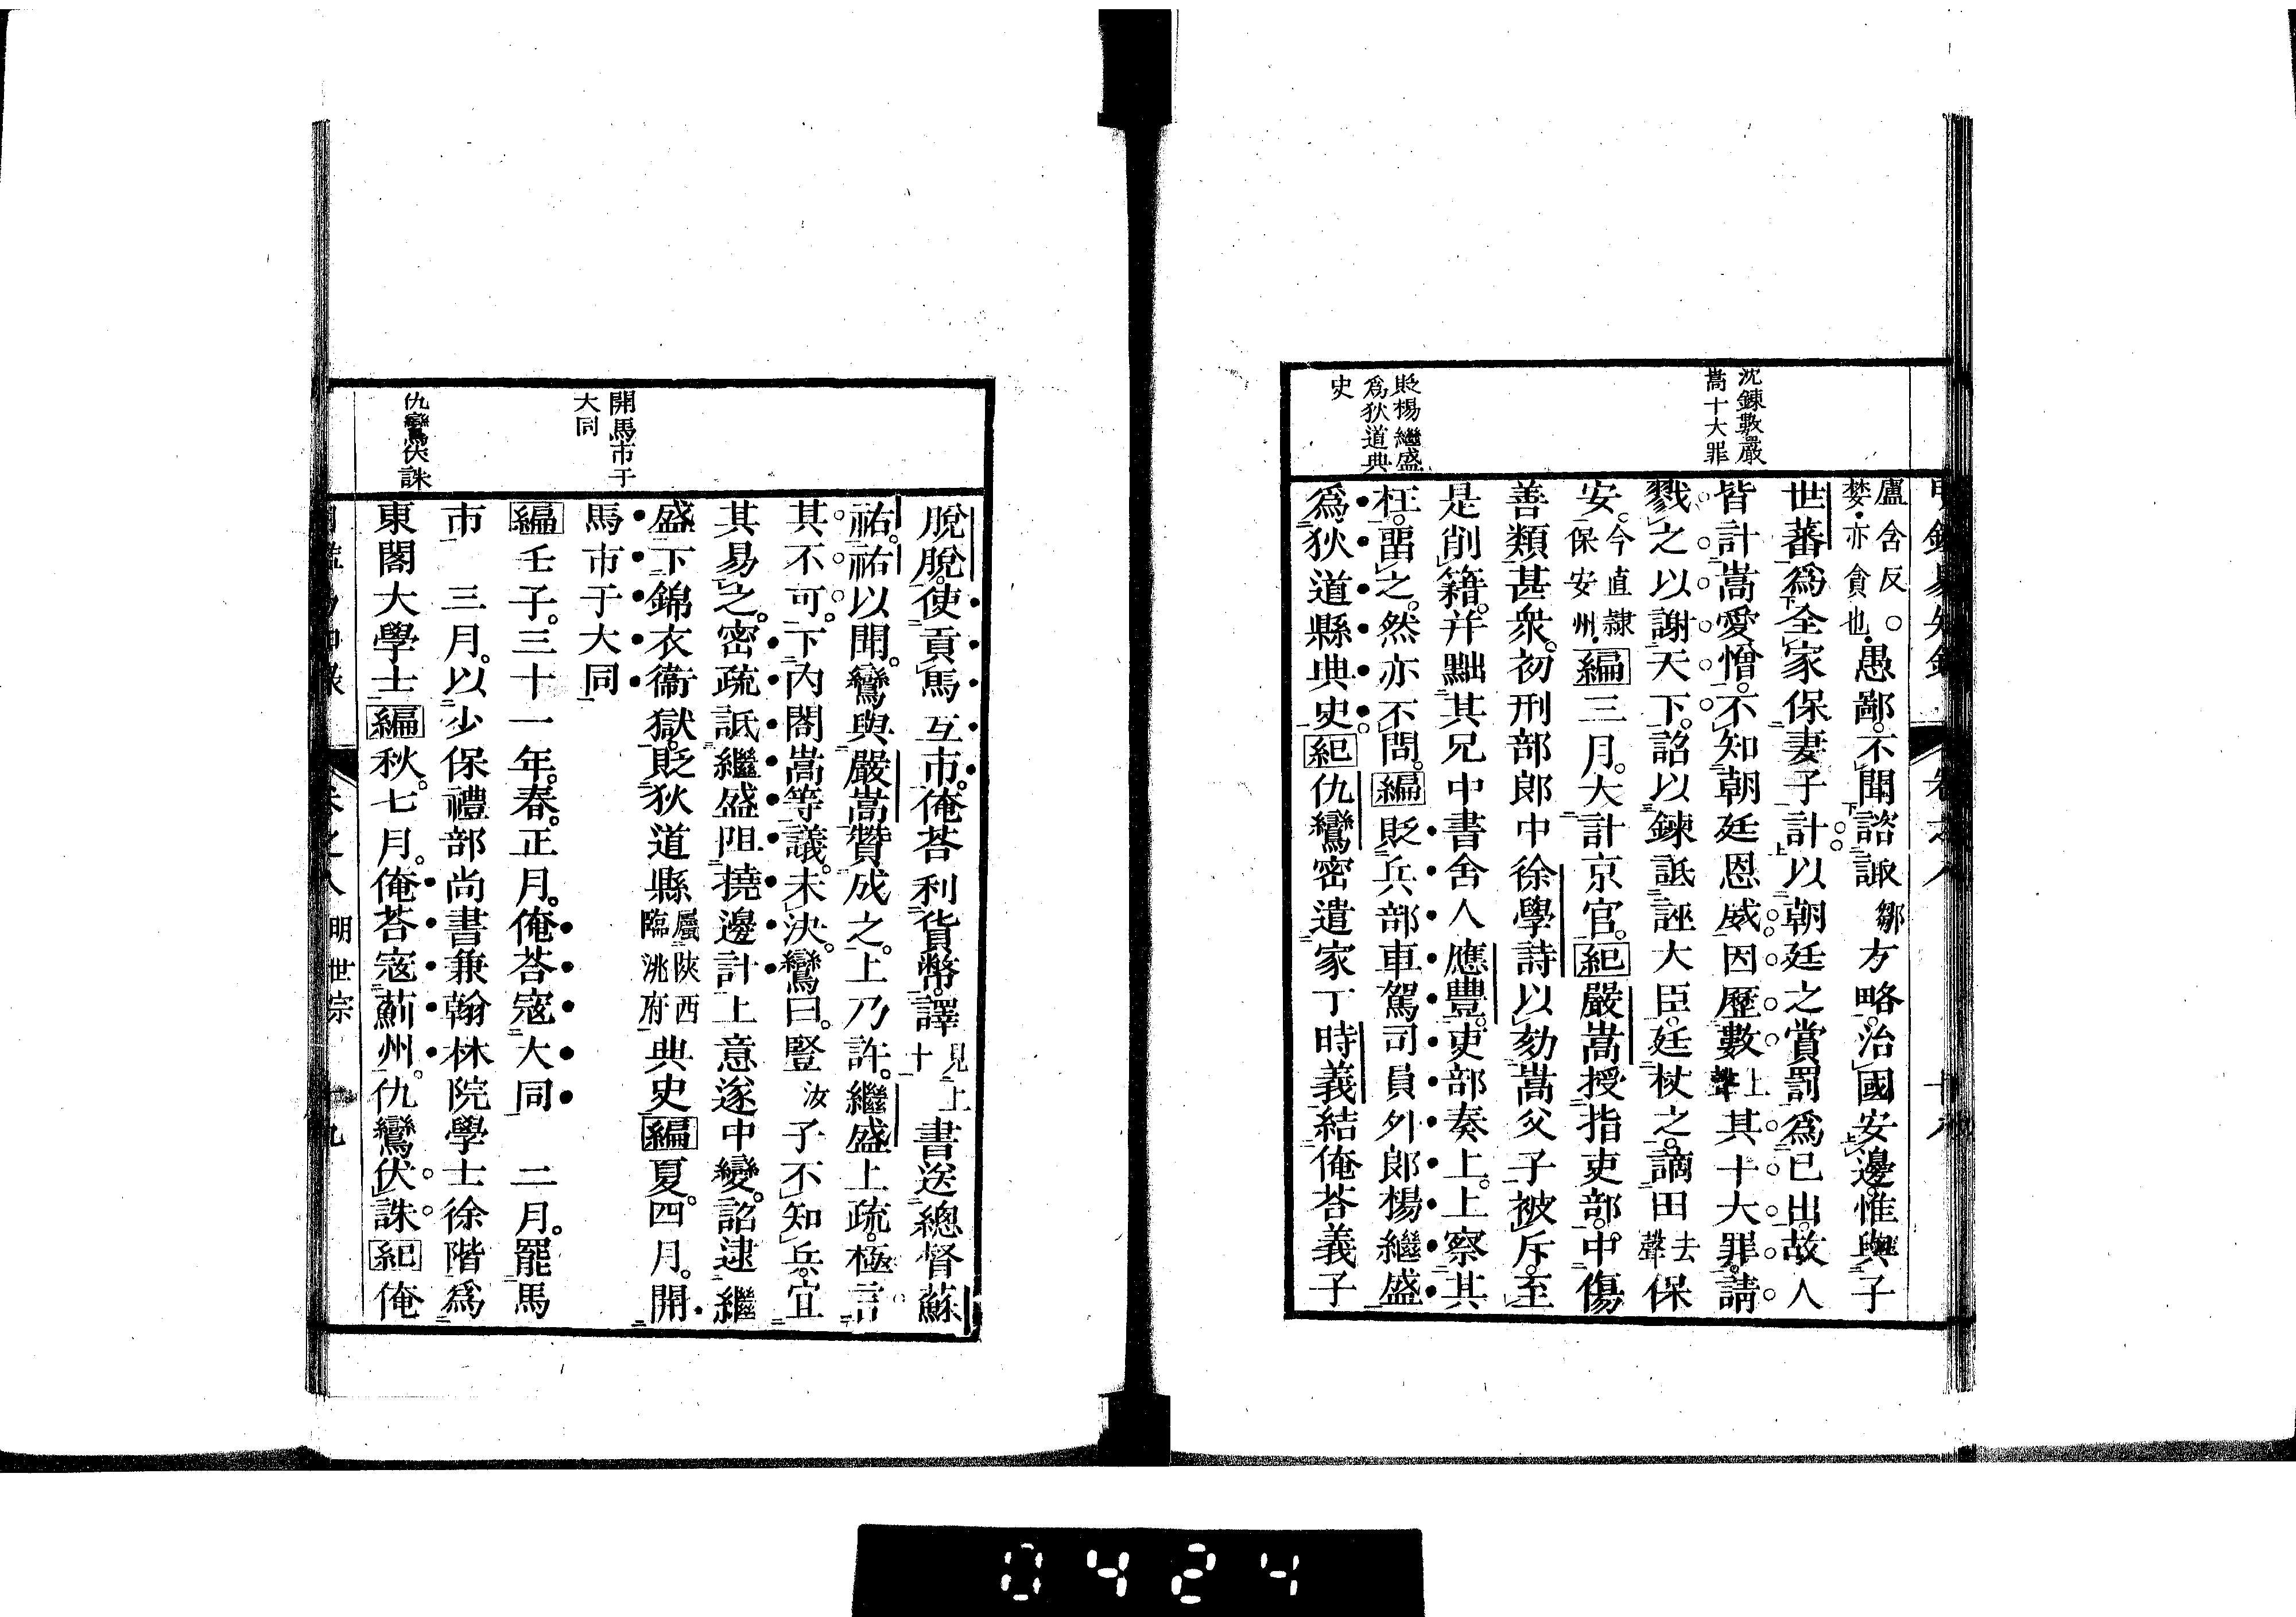 沈鍊數嚴
嵩十大罪
貶楊繼盛
爲狄道典
史
盧含反○
婪亦貪也
愚鄙。不聞諮諏鄒方略。治國安邊。惟與子
世蕃爲全家保妻子計。以朝廷之賞罰爲已出。故人
皆計嵩愛憎。不知朝廷恩威。因歷數上聲其十大罪。請
戮之以謝天下。詔以鍊詆誣大臣。廷杖之。謫田去聲保
安。今直隸保安州編三月。大計京官。紀嚴嵩授指吏部。中傷
善類甚衆。初刑部郎中徐學詩以劾嵩父子被斥。至
是削籍。并黜其兄中書舍人應豐。吏部奏上。上察其
枉。畱之。然亦不問。編貶兵部車駕司員外郎楊繼盛
爲狄道縣典史。紀仇鸞密遣家丁時義結俺荅義子
開馬市于
大同
仇鸞伏誅
脫脫。使貢馬互市。俺荅利貨幣。譯見上十書送總督蘇
祐。祐以聞。鸞與嚴嵩贊成之。上乃許。繼盛上疏。極言
其不可。下內閣嵩等議。未決。鸞曰。豎汝子不知兵。宜
其易之。密疏詆繼盛阻撓邊計上意遂中變。詔逮繼
盛下錦衣衞獄。貶狄道縣屬陝西臨洮府典史編夏。四月。開
馬市于大同
編壬子。三十一年。春。正月。俺荅寇大同 二月。罷馬
市 三月。以少保禮部尚書兼翰林院學士徐階爲
東閣大學士編秋。七月。俺荅寇薊州。仇鸞伏誅紀俺
明世宗
0424